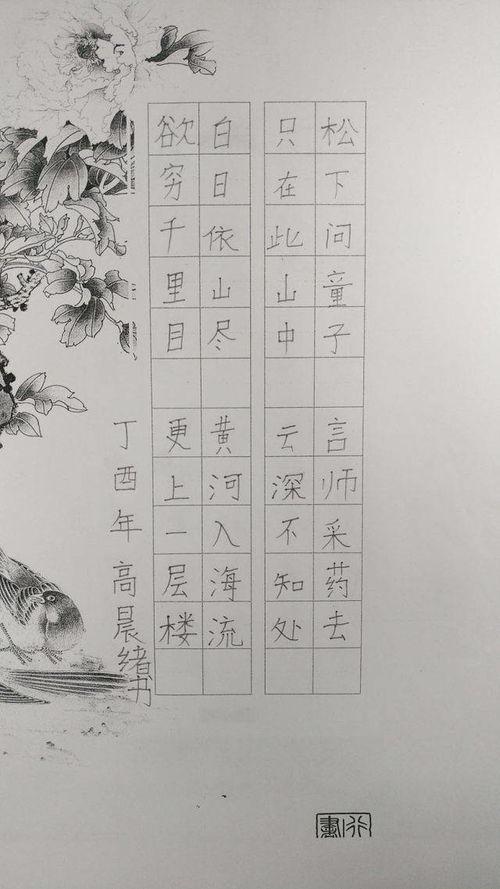 松下问童子
言师采药去
只在此山中
云深不知处
白日依山尽
黄河入海流
欲穷千里目
更上一层楼
丁酉年高晨绪书